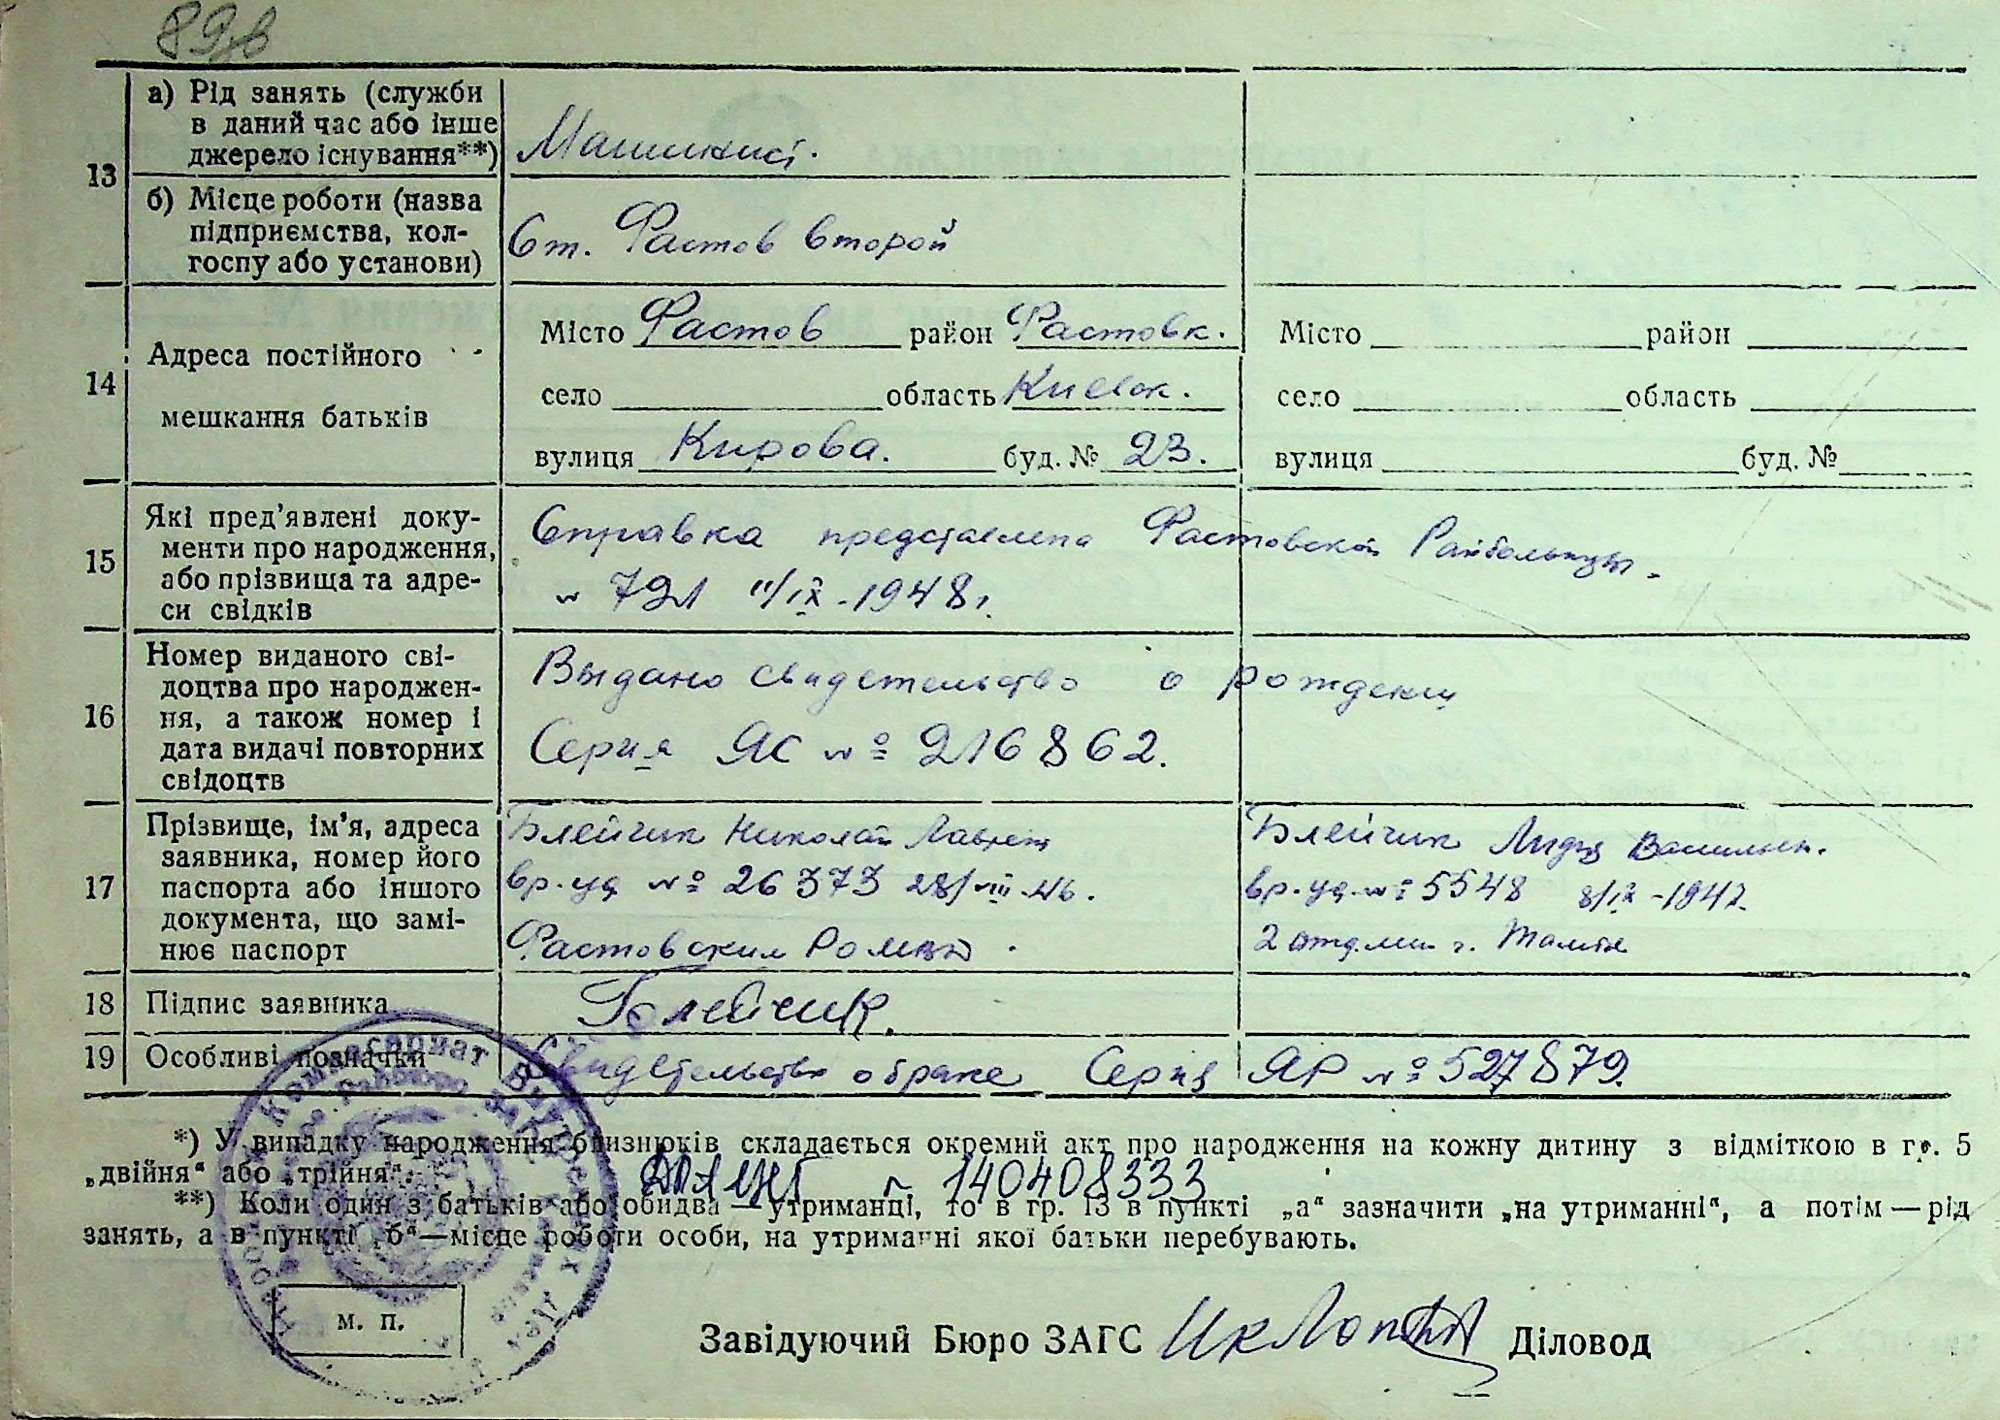 89
13
а) Рід занять (служби
в даний час або інше
джерело існування**)
Машинист.
б) Місце роботи (назва
підприємства, кол-
госпу або установи)
Ст. Фастов второй
14
Адреса постійного
мешкання батьків
Місто Фастов район Фастовк.
село область Киевск.
вулиця Кирова. буд. № 23.
Місто район
село область
вулиця буд. №
15
Які пред’явлені доку-
менти про народження,
або прізвища та адре-
си свідків
Справка представлена Фастовской Райбольницы.
11/IX-1948г.
16
Номер виданого сві-
доцтва про народжен-
ня, а також номер і
дата видачі повторних
свідоцтв
Выдано свидетельство о рождении
Серия ЯС № 216862.
17
Прізвище, ім’я, адреса
заявника, номер його
паспорта або іншого
документа, що замі-
нює паспорт
Блейчик Николай Лаврент
вр. уд № 26373 28/VIII-46.
Фастовским
Блейчик Лидия Васильев.
вр. уд. № 5548 8/IX-1947.
2 отд. мил г.
18
Підпис заявника
Блейчик.
19
Особливі позначки
Свидетельство о браке Серия ЯР № 527879.
*) У випадку народження близнюків складається окремий акт про народження на кожну дитину з відміткою в гр. 5
„двійня“ або „трійня“.
140408333
**) Коли один з батьків або обидва — утриманці, то в гр. 13 в пункті „а“ зазначити „на утриманні“, а потім — рід
занять, а в пункті „б“—місце роботи особи, на утриманні якої батьки перебувають.
м. п.
Завідуючий Бюро ЗАГС
Діловод